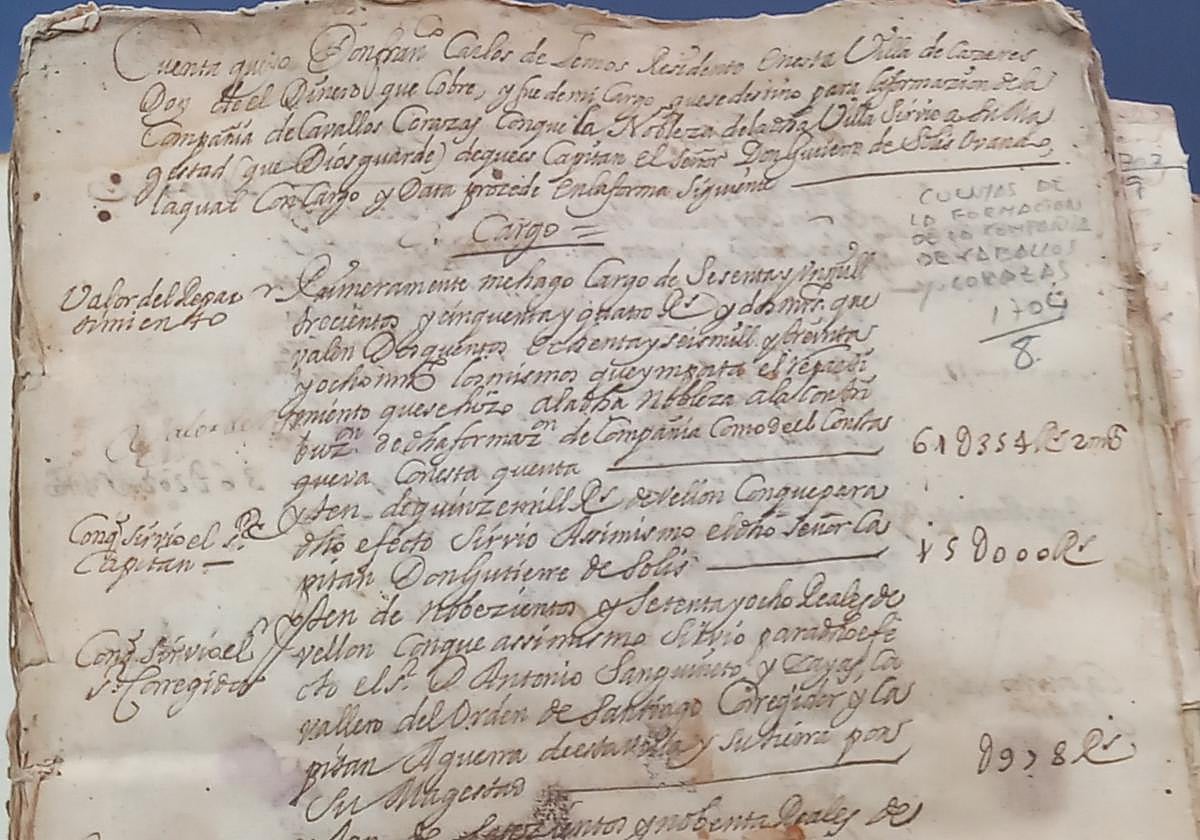 Cuenta que yo Don fran.co Carlos de Lemos Residente en esta Villa de Cazeres
Doy de el Dinero que Cobre, y fue de mi Cargo que se destino para la formazion de la
Compañia de Cavallos Corazas Con que la Nobleza de la dha Villa Sirvio a Su Ma
gestad (que Dios guarde) de que es Capitan el Señor Don Gutierre de Solis
la qual Con Cargo y Data prozede en la forma Siguiente
Cargo =
CUENTAS DE
LA FORMACION
DE LA COMPAÑIA
DE CABALLOS
Y CORAZAS
1708
8.
Valor del Repar
timiento
Primeramente me hago Cargo de Sesenta y un mill
trecientos y cinquenta y quatro Rs y dos mrs que
valen Dos quentos ochenta y seis mill y treinta
y ocho mrs los mismos que ymporta el repartti
miento que se hizo a la dha Nobleza a la Contri
buzon de dha formazon de Compañia Como de el Consta
queva Con esta quenta
61U354 Rs 2 ms
Conq Sirvio el Sr
Capitan
Yten de quinze mill Rs de vellon Con que para
dho efecto Sirvio Asimismo el dho Señor Ca
pitan Don Gutierre de Solis
15U000 Rs
Conq Sirvio el
Sr Corregidor
Yten de Nobezientos y Setenta y ocho Reales de
vellon Con que assimismo Sirvio para dho efe
cto el Sr D Antonio Sanguineto y Zayas, Ca
vallero del Orden de Santiago Corregidor y Ca
pitan A guerra de esta villa y su tierra por
Su Magestad
U978 Rs
Yten de Setezientos y nobenta Reales de